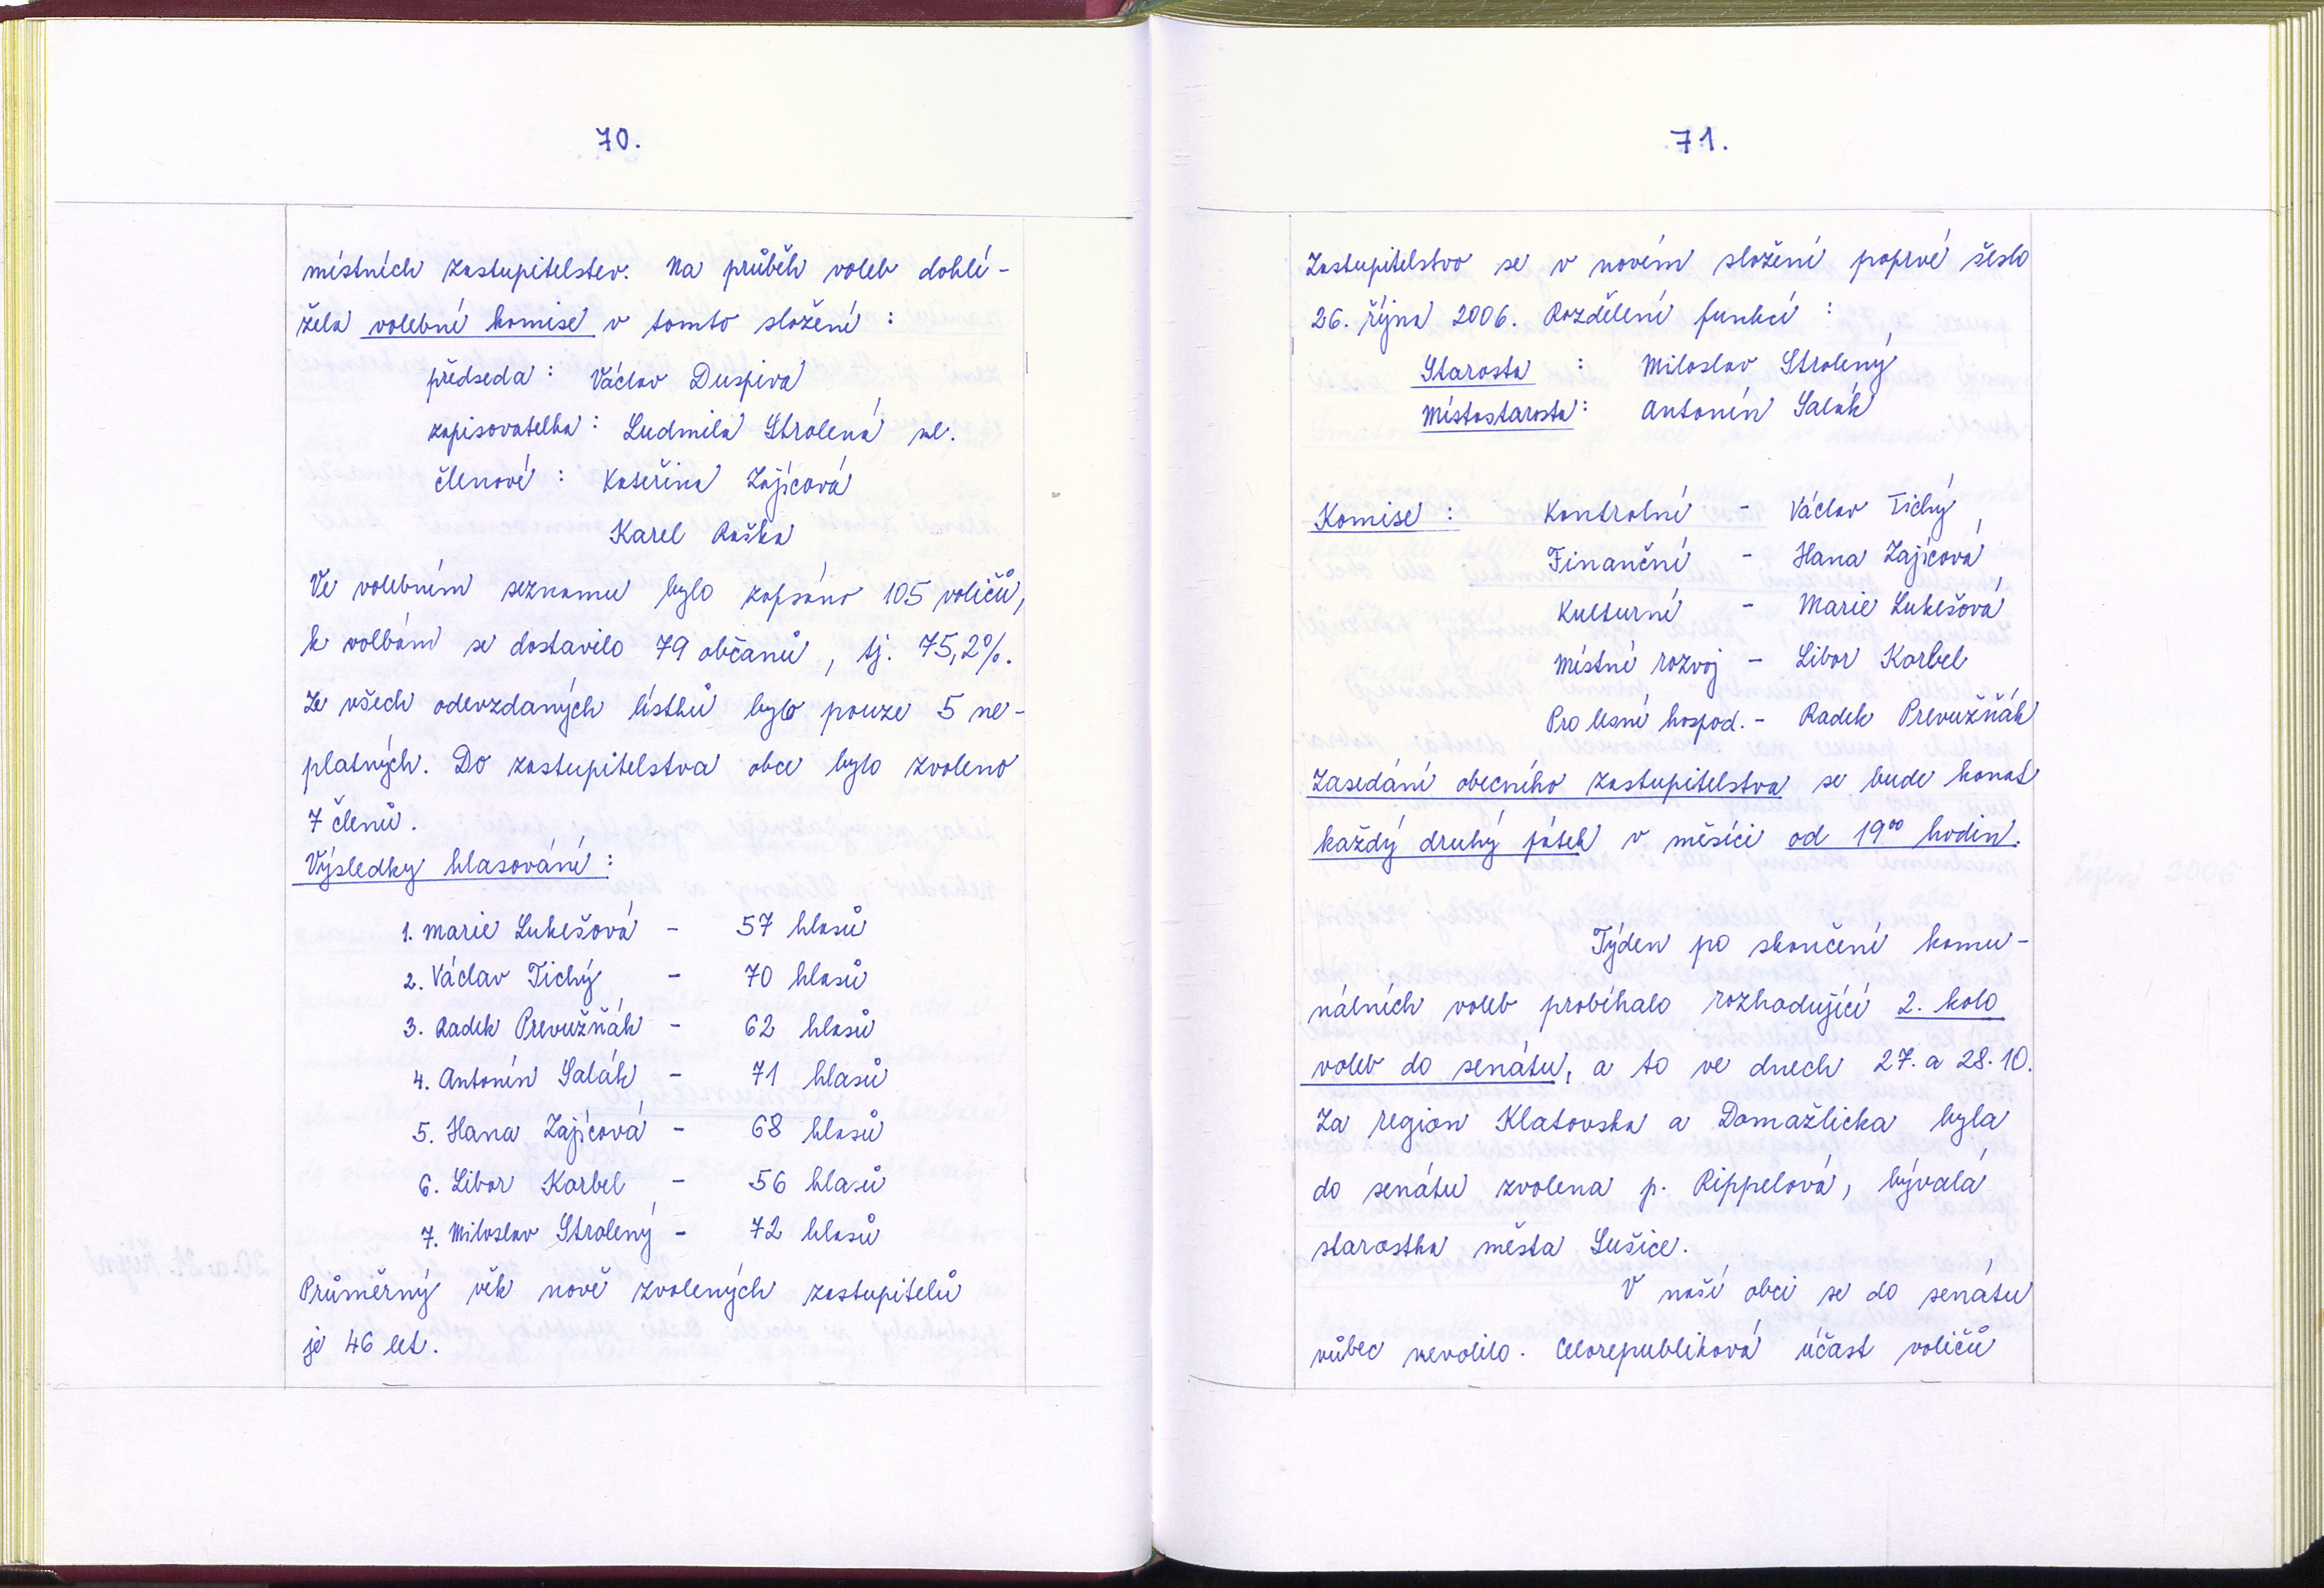 70.
místních zastupitelstev. Na průběh voleb dohlí-
žela volební komise v tomto složení :
předseda : Václav Duspiva
zapisovatelka : Ludmila Strolená ml.
členové : Kateřina Zajícová
Karel Raška
Ve volebním seznamu bylo zapsáno 105 voličů,
k volbám se dostavilo 79 občanů, tj. 75,2%.
Ze všech odevzdaných lístků bylo pouze 5 ne-
platných. Do zastupitelstva obce bylo zvoleno
7 členů.
Výsledky hlasování :
1. Marie Lukešová - 57 hlasů
2. Václav Tichý - 70 hlasů
3. Radek Prevužňák - 62 hlasů
4. Antonín Salák - 71 hlasů
5. Hana Zajícová - 68 hlasů
6. Libor Karbel - 56 hlasů
7. Miloslav Strolený - 72 hlasů
Průměrný věk nově zvolených zastupitelů
je 46 let.
71.
Zastupitelstvo se v novém složení poprvé sešlo
26. října 2006. Rozdělení funkcí :
Starosta : Miloslav Strolený
Místostarosta : Antonín Salák
Komise : Kontrolní - Václav Tichý
Finanční - Hana Zajícová
Kulturní - Marie Lukešová
Místní rozvoj - Libor Karbel
Pro lesní hospod. - Radek Prevužňák
Zasedání obecního zastupitelstva se bude konat
každý druhý pátek v měsíci od 19⁰⁰ hodin.
Týden po skončení komu-
nálních voleb probíhalo rozhodující 2. kolo
voleb do senátu, a to ve dnech 27. a 28. 10.
Za region Klatovska a Domažlicka byla
do senátu zvolena p. Rippelová, bývalá
starostka města Sušice.
V naší obci se do senátu
vůbec nevolilo. Celorepubliková účast voličů